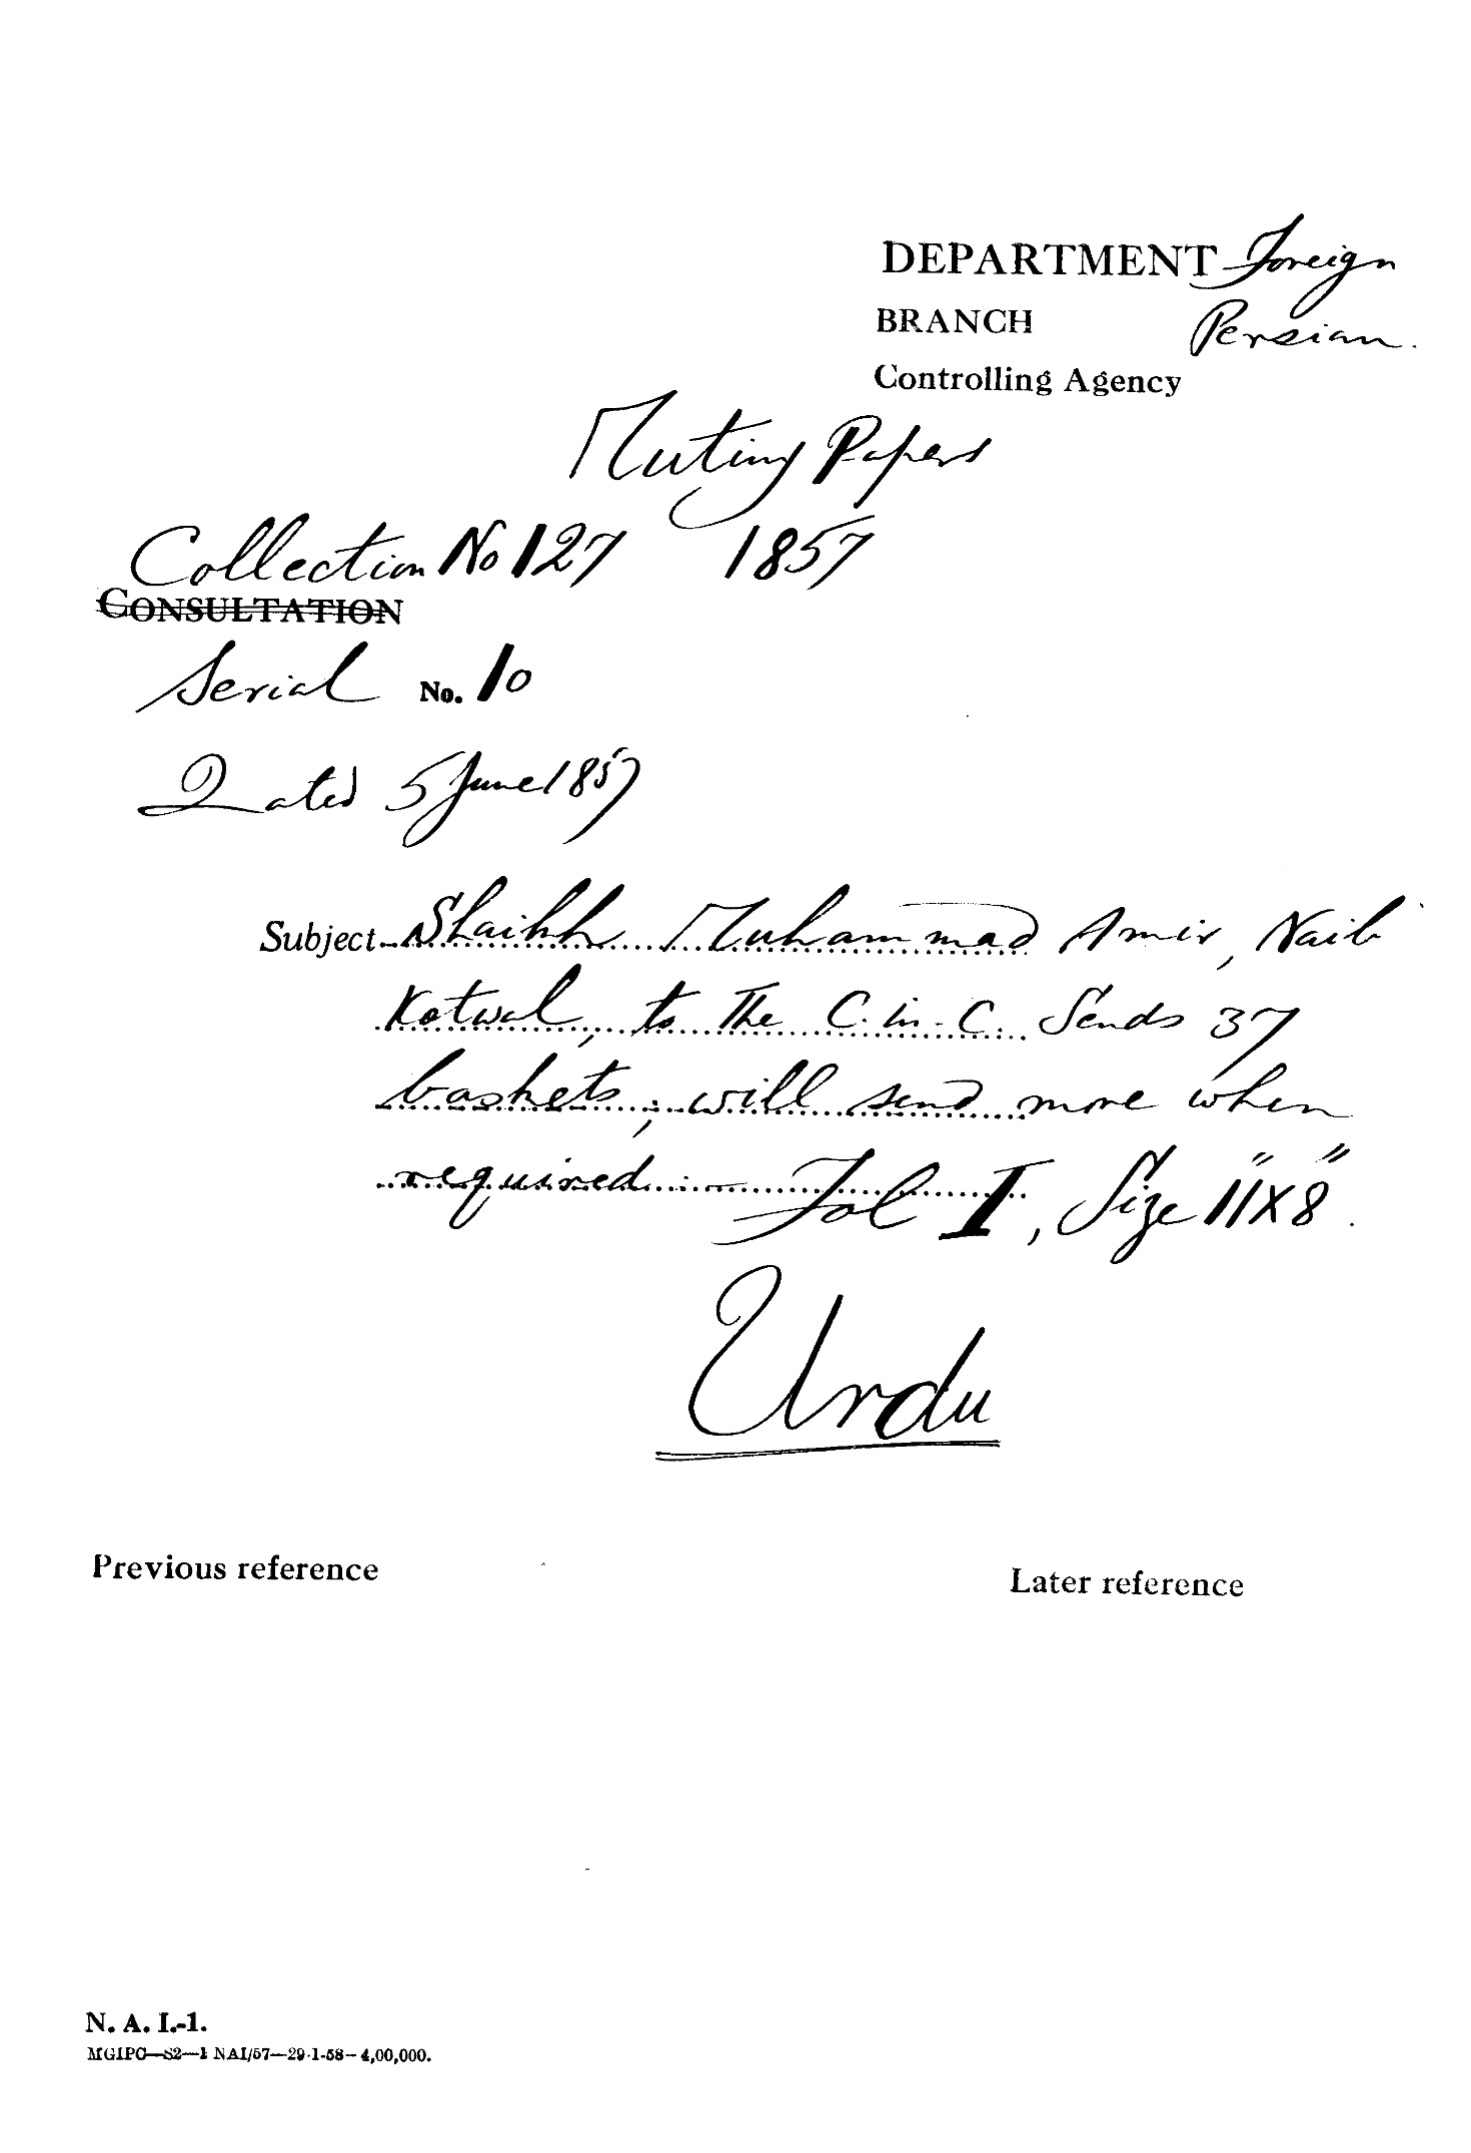 DEPARTMENT Foreign
BRANCH Persian.
Controlling Agency
Mutiny Papers
Collection No 127 1857
CONSULTATION
Serial No. 10
Dated 5 June 1857
Subject Shaikh Muhammad Amir, Naib
Kotwal, to the C. in. C. Sends 37
baskets; will send more when
required :— Fol I, Size 11" x 8".
Urdu
Previous reference
Later reference
N. A. I.-1.
MGIPC—S2—1 NAI/57—29-1-58—4,00,000.